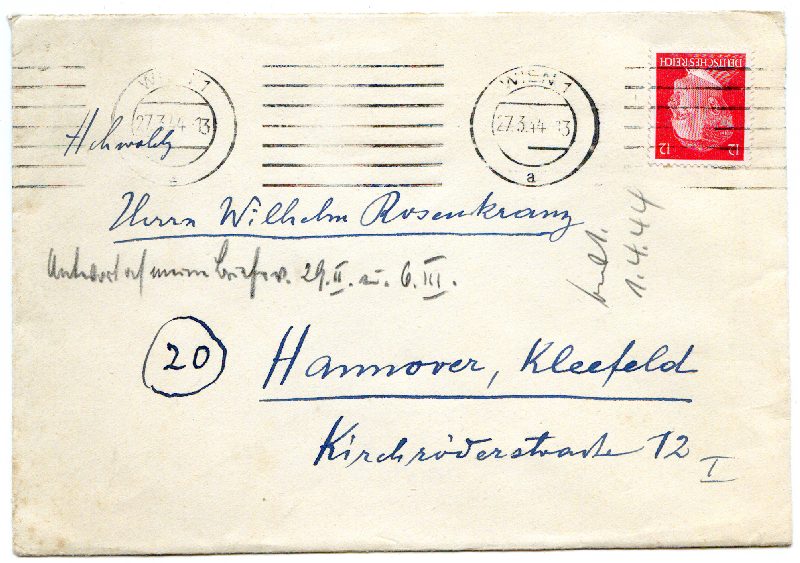 WIEN 1
27.3.44-13
a
WIEN 1
27.3.44-13
a
DEUTSCHES REICH
12 12
Hchwohlg
Herrn Wilhelm Rosenkranz
Antwort auf meine Briefe v. 29.II. u. 6.III.
1.4.44
20
Hannover, Kleefeld
Kirchröderstraße 12 I